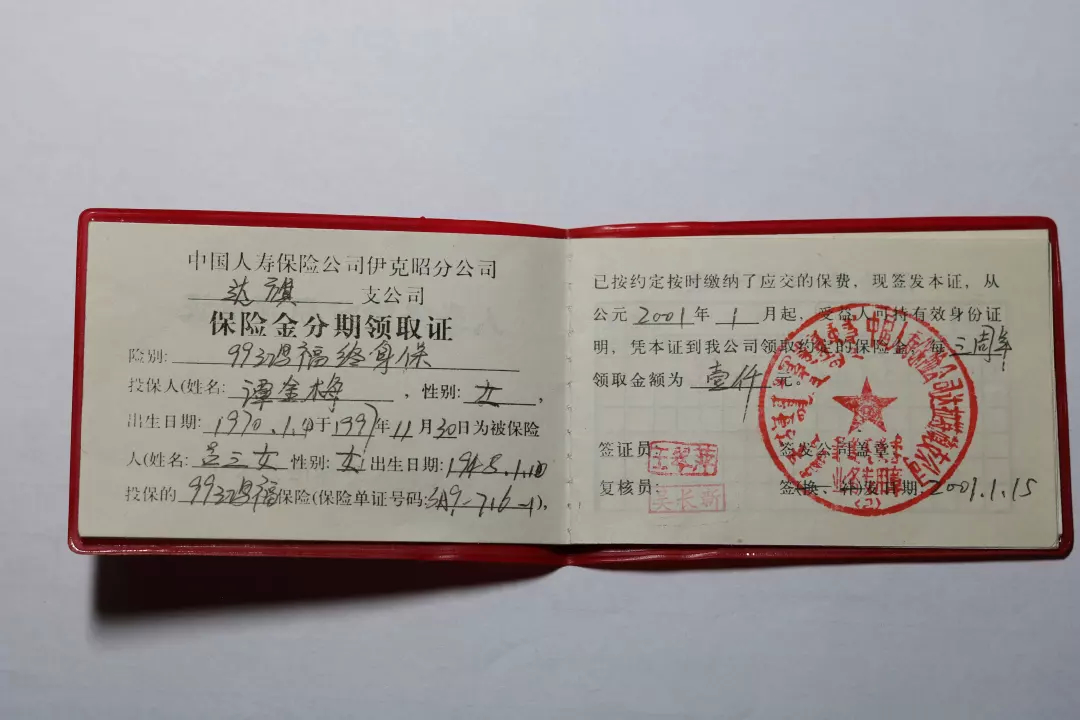 中国人寿保险公司伊克昭分公司
达旗 支公司
保险金分期领取证
险别: 99鸿福终身保
投保人(姓名: 谭金梅 ,性别: 女,
出生日期: 1970.1. 于1997年11月30日为被保险
人(姓名: 三女 性别: 女 出生日期: 1945.1.10
投保的 99鸿福保险(保险单证号码: 9-716-),
已按约定按时缴纳了应交的保费,现签发本证,从
公元2001年1月起,受益人可持有效身份证
明,凭本证到我公司领取约定的保险金,每三周年
领取金额为 壹仟 元。
签证员: 王翠萍
签发公司盖章:
复核员: 吴长新
签(换、补)发日期: 2001.1.15
中国人寿保险公司达拉特旗支公司
业务专用章
(2)